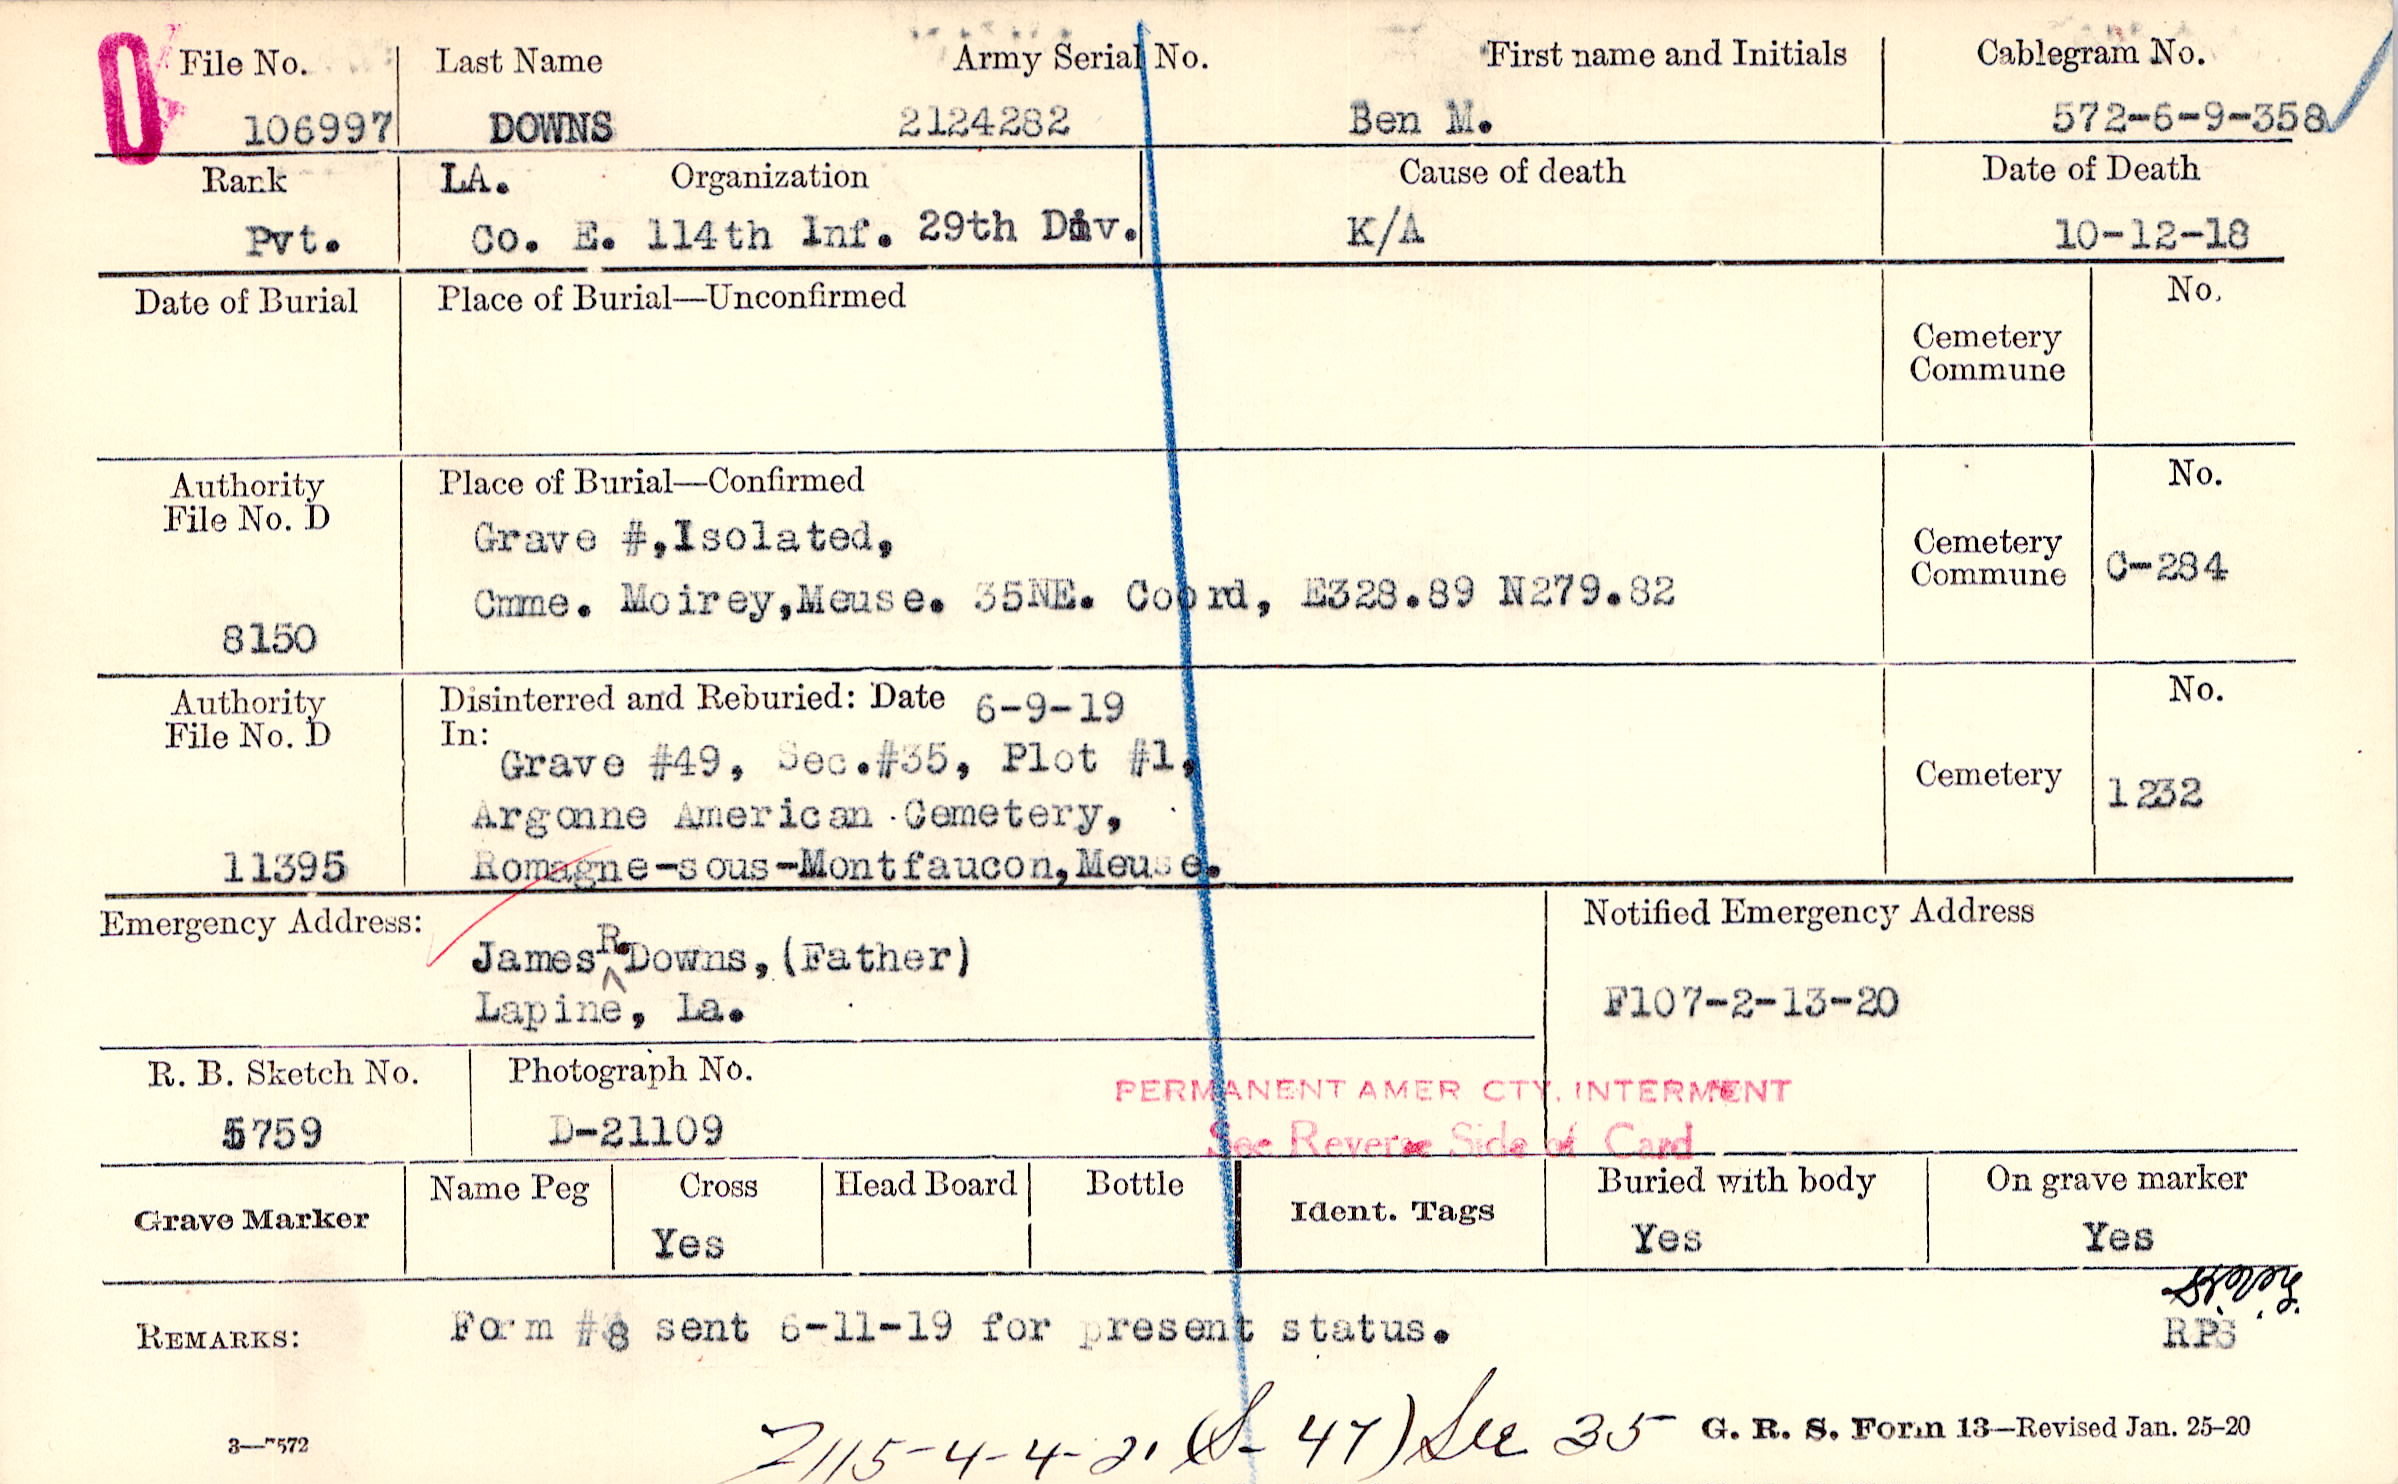 File No. Last Name Army Serial No. First name and Initials Cablegram No.
106997 DOWNS 2124282 Ben M. 572-6-9-358
Rank LA. Organization Cause of death Date of Death
Pvt. Co. E. 114th Inf. 29th Div. K/A 10-12-18
Date of Burial Place of Burial—Unconfirmed No.
Cemetery
Commune
Authority Place of Burial—Confirmed No.
File No. D
Grave #,Isolated, Cemetery
Commune C-284
Cmme. Moirey,Meuse. 35NE. Coord, E328.89 N279.82
8150
Authority Disinterred and Reburied: Date 6-9-19 No.
File No. D In:
Grave #49, Sec.#35, Plot #1, Cemetery 1232
Argonne American Cemetery,
11395 Romagne-sous-Montfaucon,Meuse.
Emergency Address: Notified Emergency Address
James R. Downs,(Father)
Lapine, La. F107-2-13-20
R. B. Sketch No. Photograph No.
PERMANENT AMER CTY. INTERMENT
5759 D-21109 See Reverse Side of Card
Grave Marker Name Peg Cross Head Board Bottle Ident. Tags Buried with body On grave marker
Yes Yes Yes
REMARKS: Form #8 sent 6-11-19 for present status. RPS
(S- 47) See 35
3—7572 G. R. S. Form 13—Revised Jan. 25-20